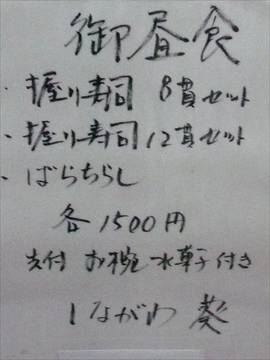 御昼食
・握り寿司 8貫セット
・握り寿司 12貫セット
・ばらちらし
各1500円
先付 お椀 水菓子付き
しながわ 葵